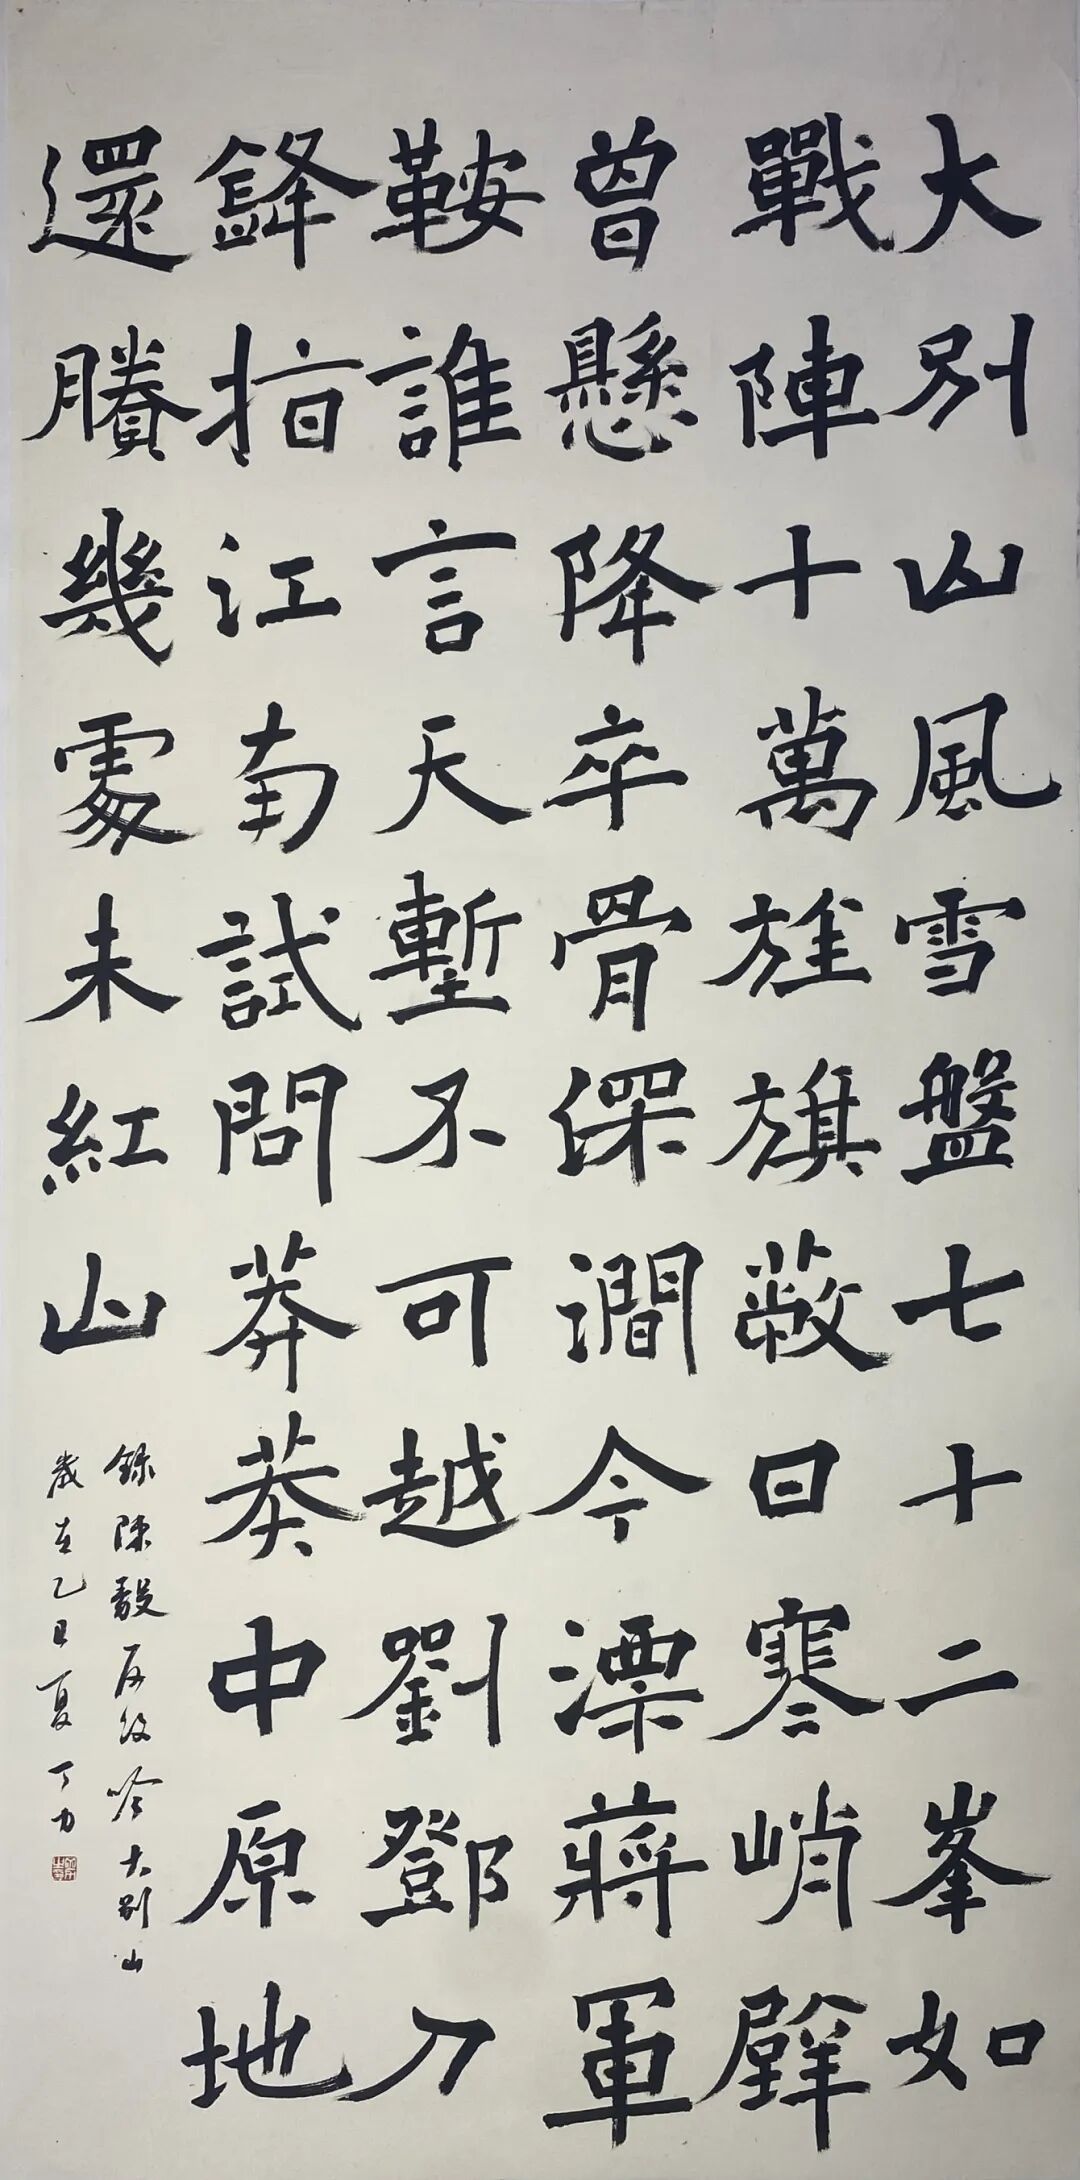 大別山風雪盤七十二峯如
戰陣十萬旌旗蔽日寒峭壁
曾懸降卒骨深澗今漂蔣軍
鞍誰言天塹不可越劉鄧刀
鋒指江南試問莽莽中原地
還賸幾處未紅山
錄陳毅反攻吟大別山
歲在乙巳夏丁力